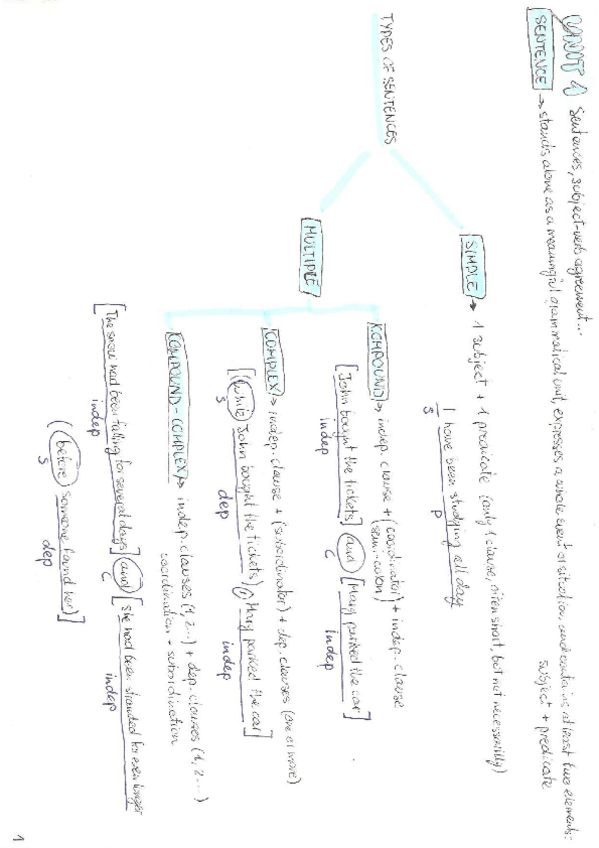 UNIT 1 Sentences, subject-verb agreement...
SENTENCE → stands alone as a meaningful grammatical unit, expresses a whole event or situation, and contains at least two elements:
subject + predicate
TYPES OF SENTENCES
SIMPLE → 1 subject + 1 predicate (only 1 clause, often short, but not necessarily)
I have been studying all day
S P
MULTIPLE
COMPOUND → indep. clause + (coordinator) + indep. clause
semi-colon
[John bought the tickets] and [Mary parked the car]
indep C indep
COMPLEX → indep. clause + (subordinator) + dep. clauses (one or more)
[(While John bought the tickets), Mary parked the car]
S dep indep
COMPOUND-COMPLEX → indep. clauses (1, 2...) + dep. clauses (1, 2...)
coordination + subordination
[The snow had been falling for several days] and [she had been stranded for even longer
indep C indep
(before someone found her)]
S dep
1